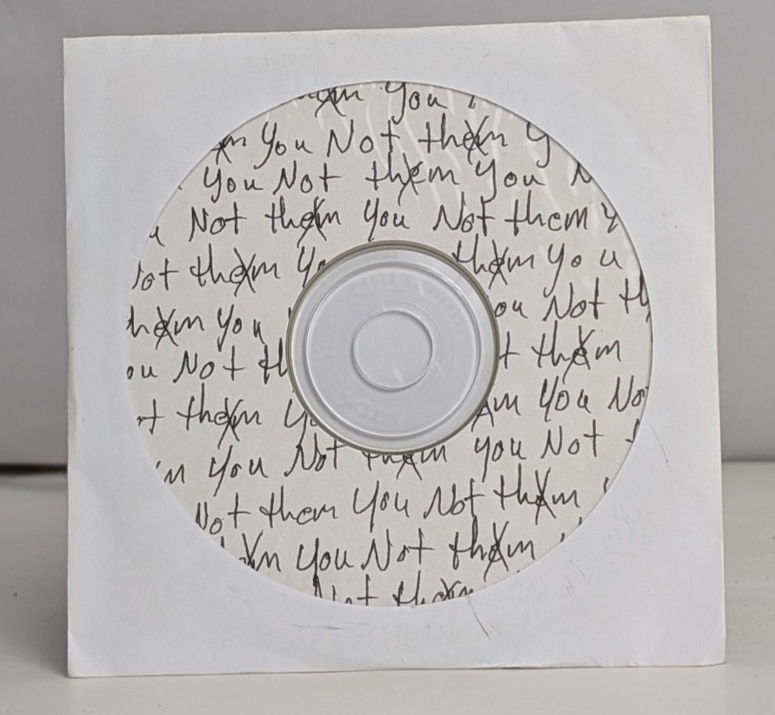 You
You Not them y
You Not them You N
Not them You Not them y
ot them Yo them You
hem You ou Not th
ou Not th t them
t them Yo m You No
m You Not them You Not t
Not them You Not them
m You Not them
Not them